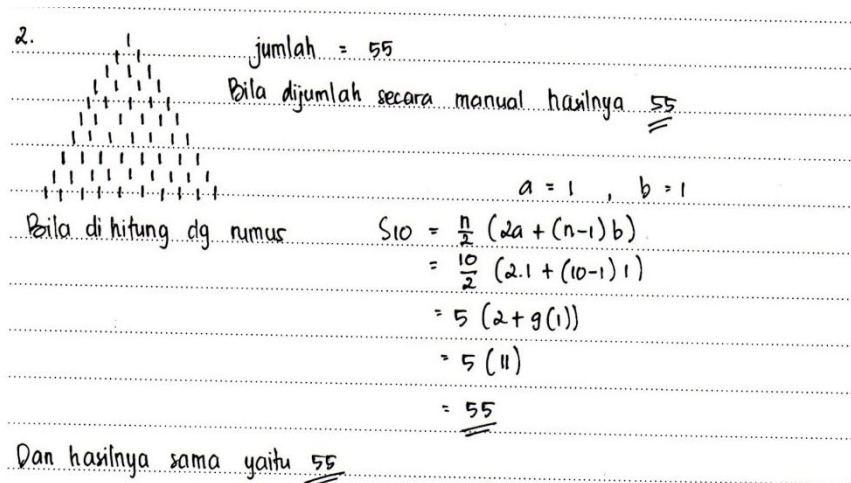 2.
jumlah = 55
Bila dijumlah secara manual hasilnya 55
a = 1 , b = 1
Bila di hitung dg rumus S10 = n/2 (2a + (n-1) b)
= 10/2 (2.1 + (10-1) 1)
= 5 (2 + 9(1))
= 5 (11)
= 55
Dan hasilnya sama yaitu 55